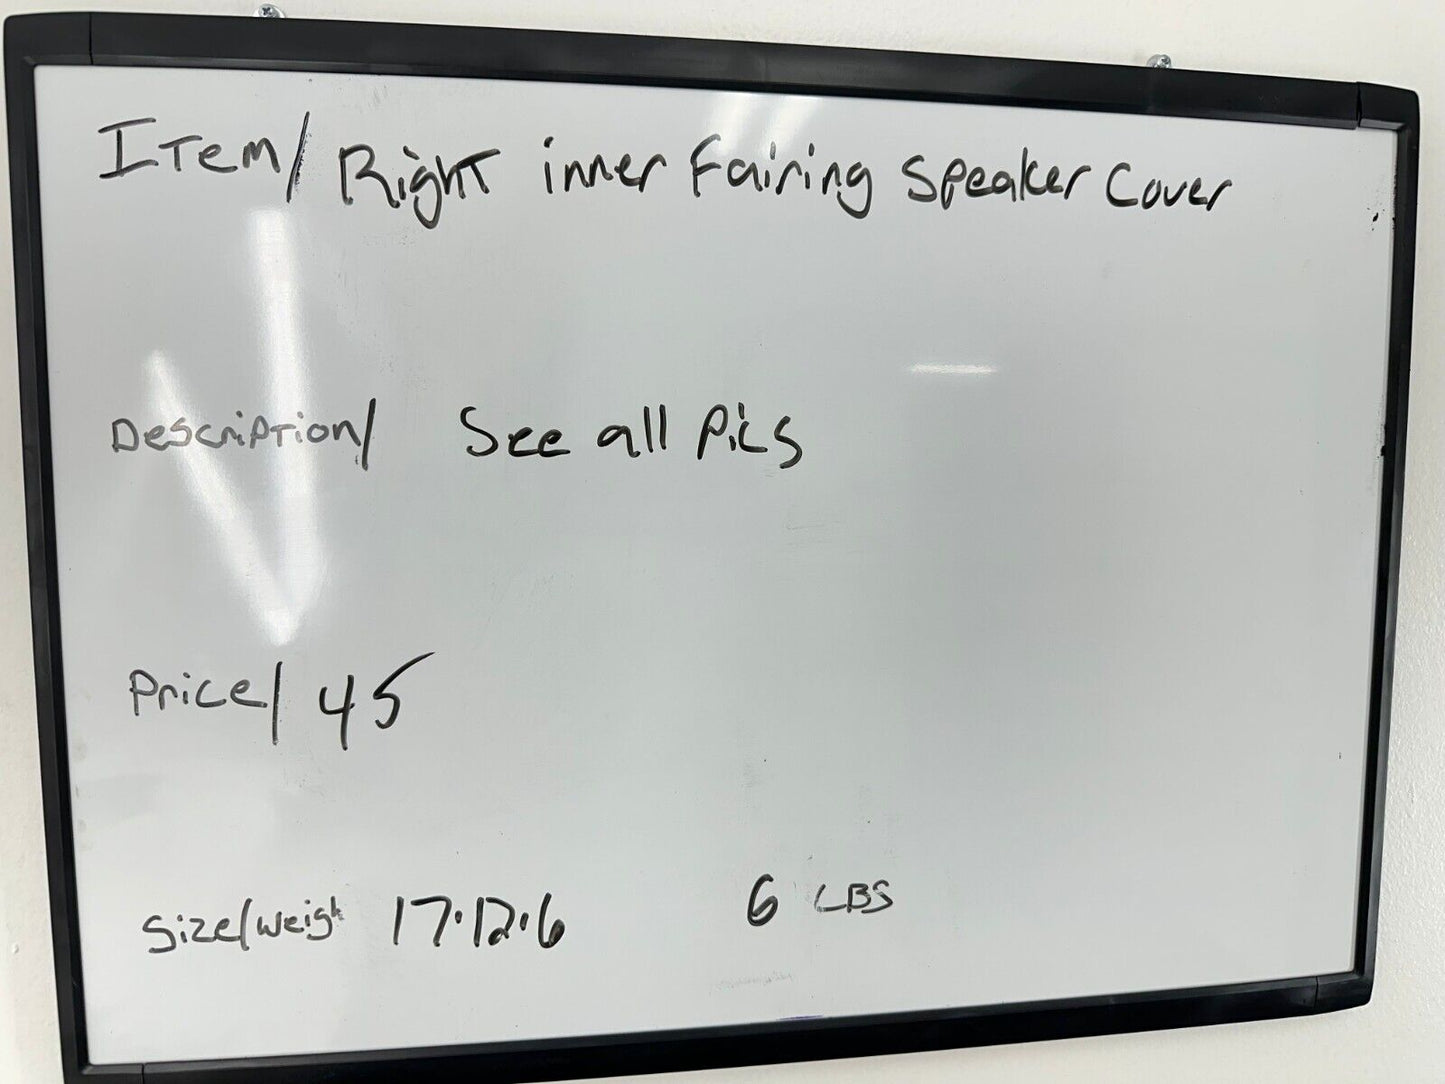 Item/ Right inner Fairing Speaker Cover
Description/ See all Pics
Price/ 45
Size/weigh 17·12·6 6 LBS